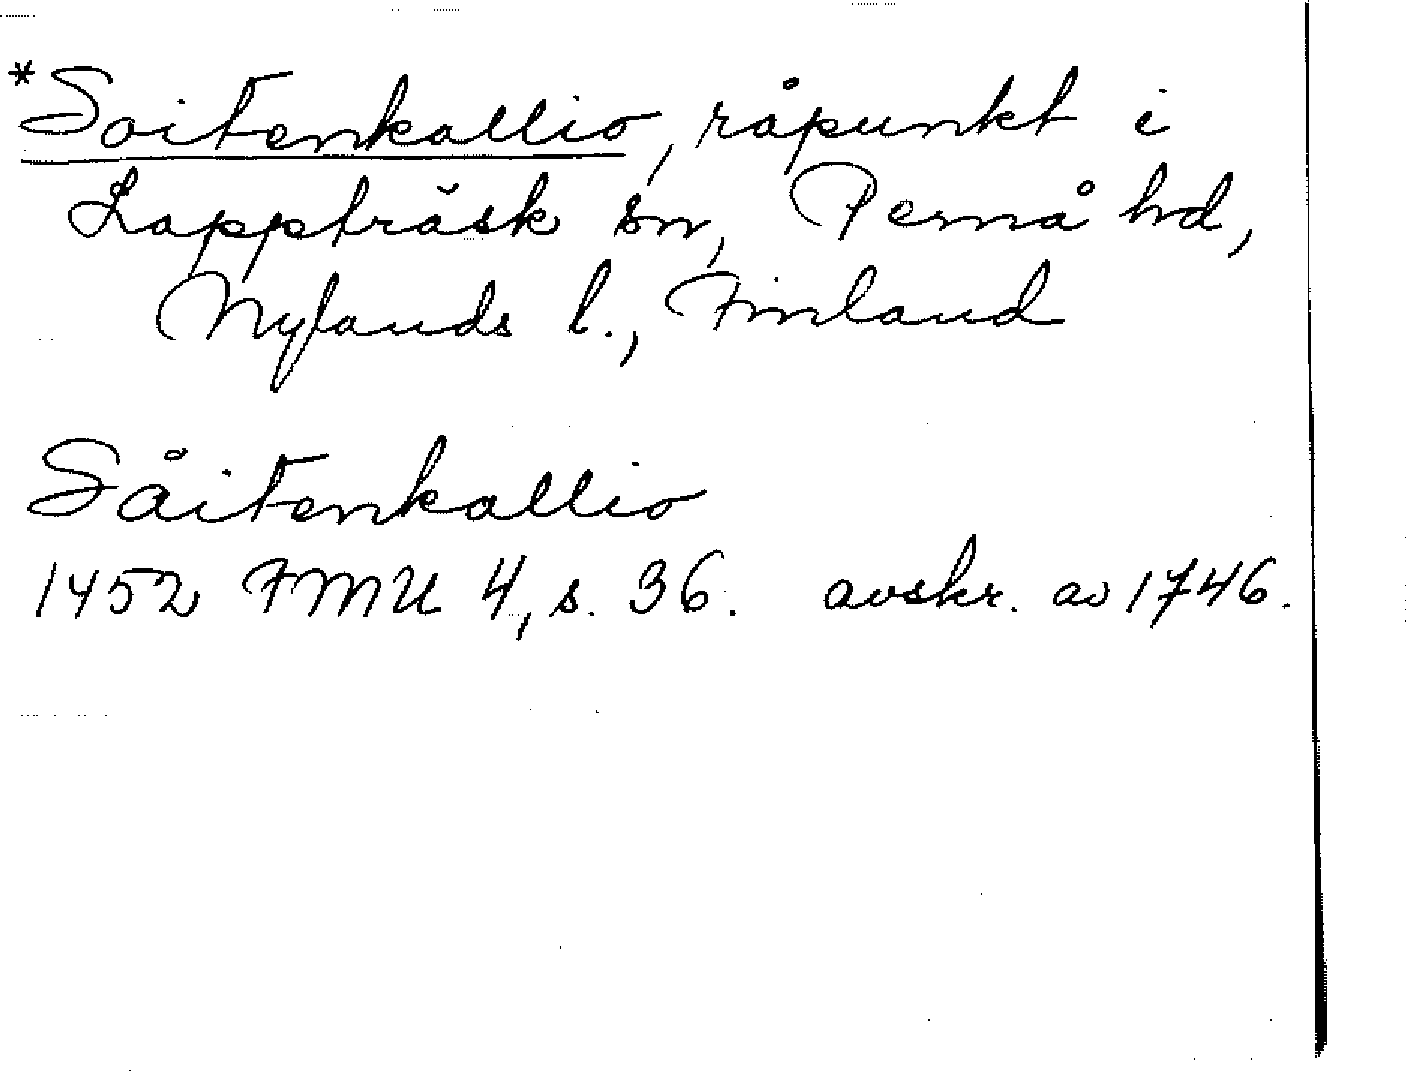 *Soitenkallio, råpunkt i
Lappträsk sn, Pernå hd,
Nylands l., Finland
Såitenkallio
1452 FMU 4, s. 36. avskr. av 1746.